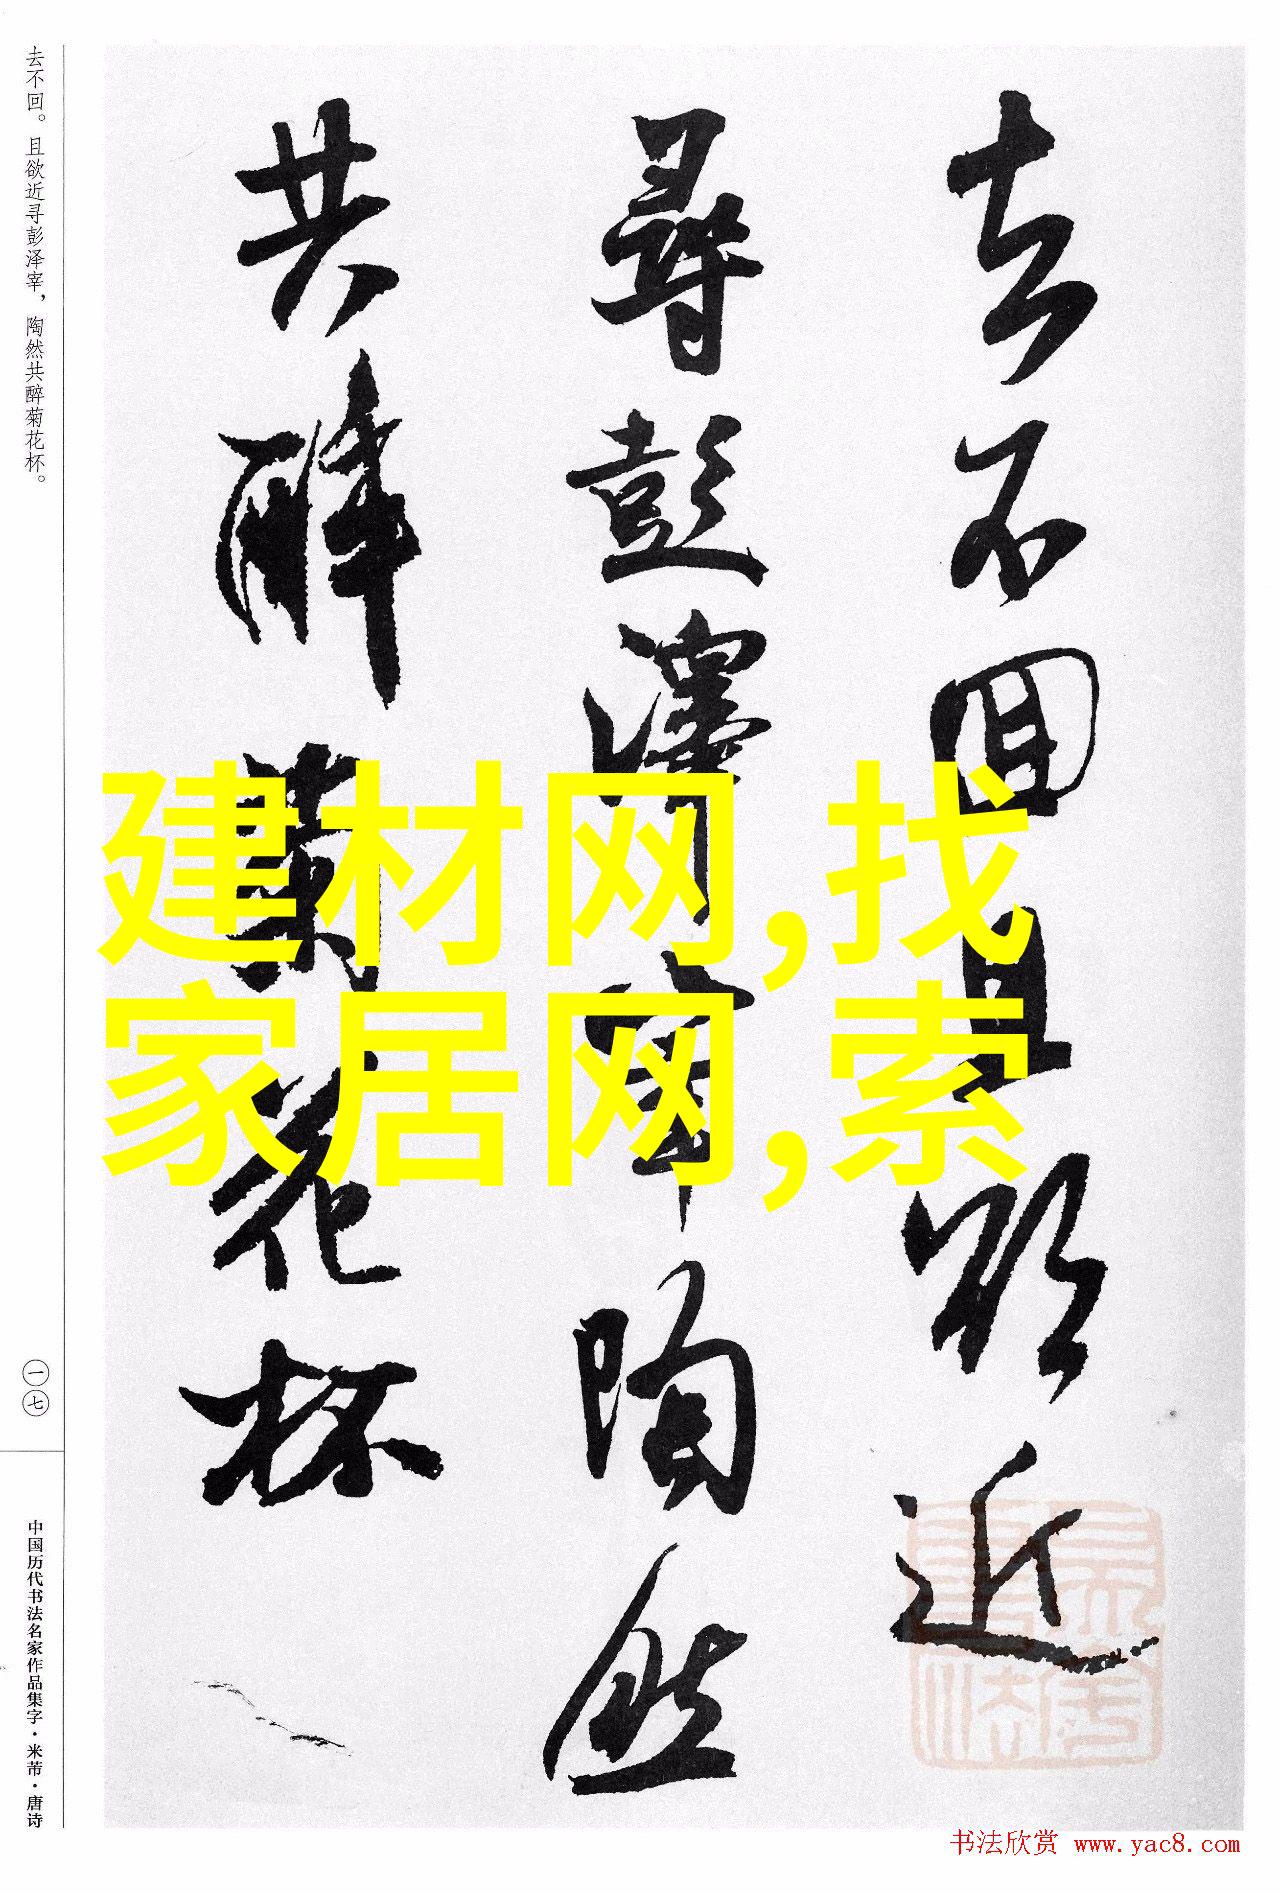 去不回且欲近
寻彭泽宰陶然
共醉菊花杯
去不回。且欲近寻彭泽宰，陶然共醉菊花杯。
一七
中国历代书法名家作品集字·米芾·唐诗
建材网,找
家居网,索
书法欣赏 www.yac8.com